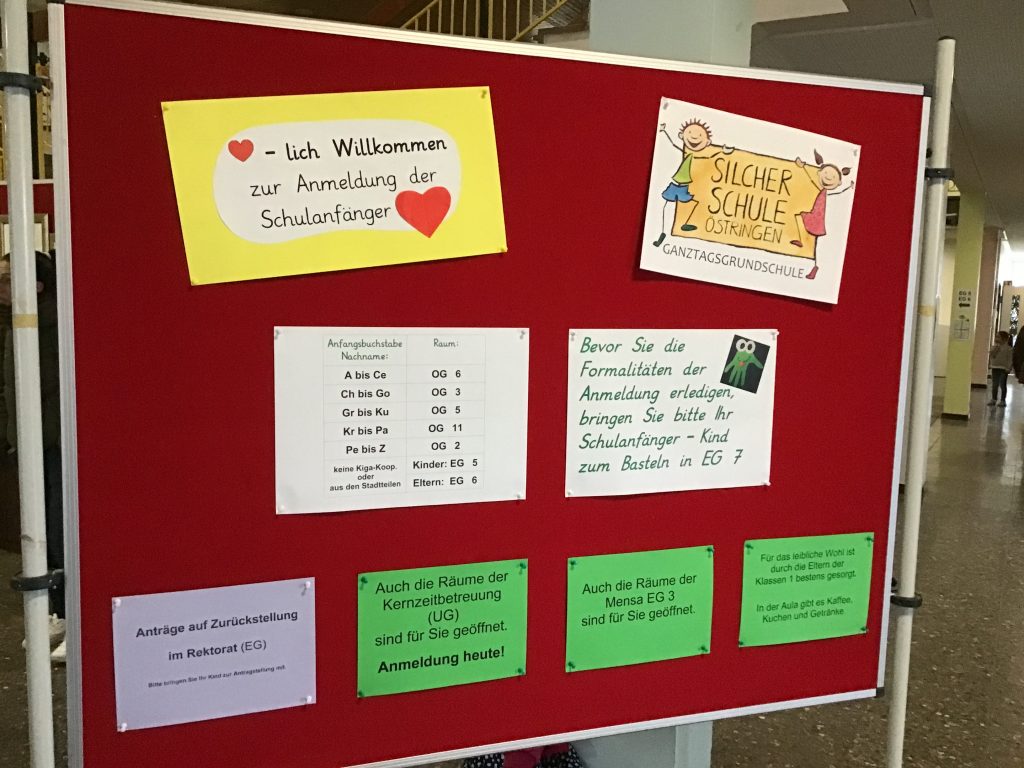 - lich Willkommen
zur Anmeldung der
Schulanfänger
SILCHER
SCHULE
ÖSTRINGEN
GANZTAGSGRUNDSCHULE
Anfangsbuchstabe Nachname: Raum:
A bis Ce OG 6
Ch bis Go OG 3
Gr bis Ku OG 5
Kr bis Pa OG 11
Pe bis Z OG 2
keine Kiga-Koop.
oder
aus den Stadtteilen
Kinder: EG 5
Eltern: EG 6
Bevor Sie die
Formalitäten der
Anmeldung erledigen,
bringen Sie bitte Ihr
Schulanfänger - Kind
zum Basteln in EG 7
Anträge auf Zurückstellung
im Rektorat (EG)
Bitte bringen Sie Ihr Kind zur Antragstellung mit.
Auch die Räume der
Kernzeitbetreuung
(UG)
sind für Sie geöffnet.
Anmeldung heute!
Auch die Räume der
Mensa EG 3
sind für Sie geöffnet.
Für das leibliche Wohl ist
durch die Eltern der
Klassen 1 bestens gesorgt.
In der Aula gibt es Kaffee,
Kuchen und Getränke.
EG 5
EG 6